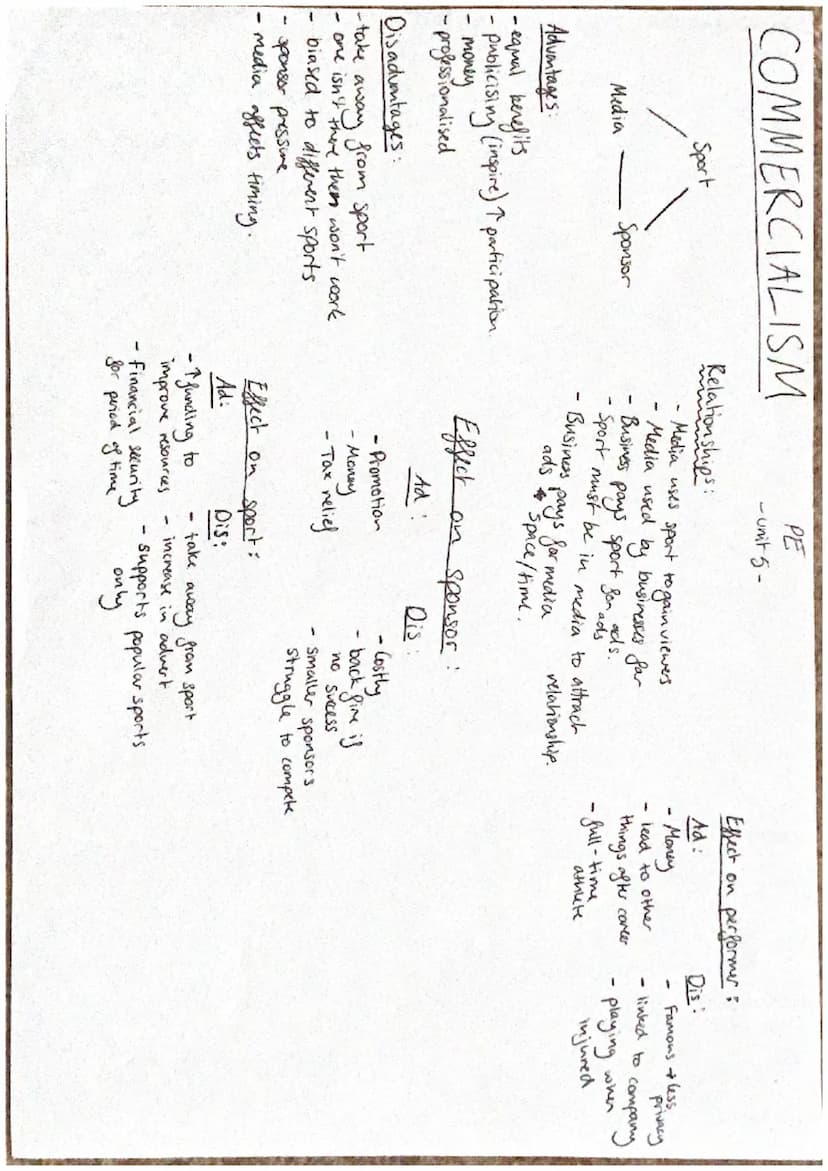 COMMERCIALISM
PE
- unit 5 -
Sport
Media
Sponsor
Relationships:
- Media uses sport to gain viewers
- Media used by businesses for
- Business pays sport for ads.
- Sport must be in media to attract
- Business pays for media
ads
space/time.
relationship.
Advantages:
- equal benefits
- publicising (inspire) ↑ participation.
- money
- professionalised
Disadvantages:
- take away from sport
- one isn't there them won't work
- biased to different sports
- sponsor pressure
- media affects timing.
Effect on sponsor:
Ad:
- Promotion
- Money
- Tax relief
Dis:
- Costly
- backfire if
no success
- smaller sponsors
struggle to compete
Effect on sport:
Ad:
- ↑ funding to
improve resources
- Financial security
for period of time
Dis:
- take away from sport
- increase in advert
- supports popular sports
only
Effect on performer:
Ad:
- Money
- lead to other
things after career
- full-time
athlete
Dis:
- Famous → less
privacy
- linked to company
- playing when
injured